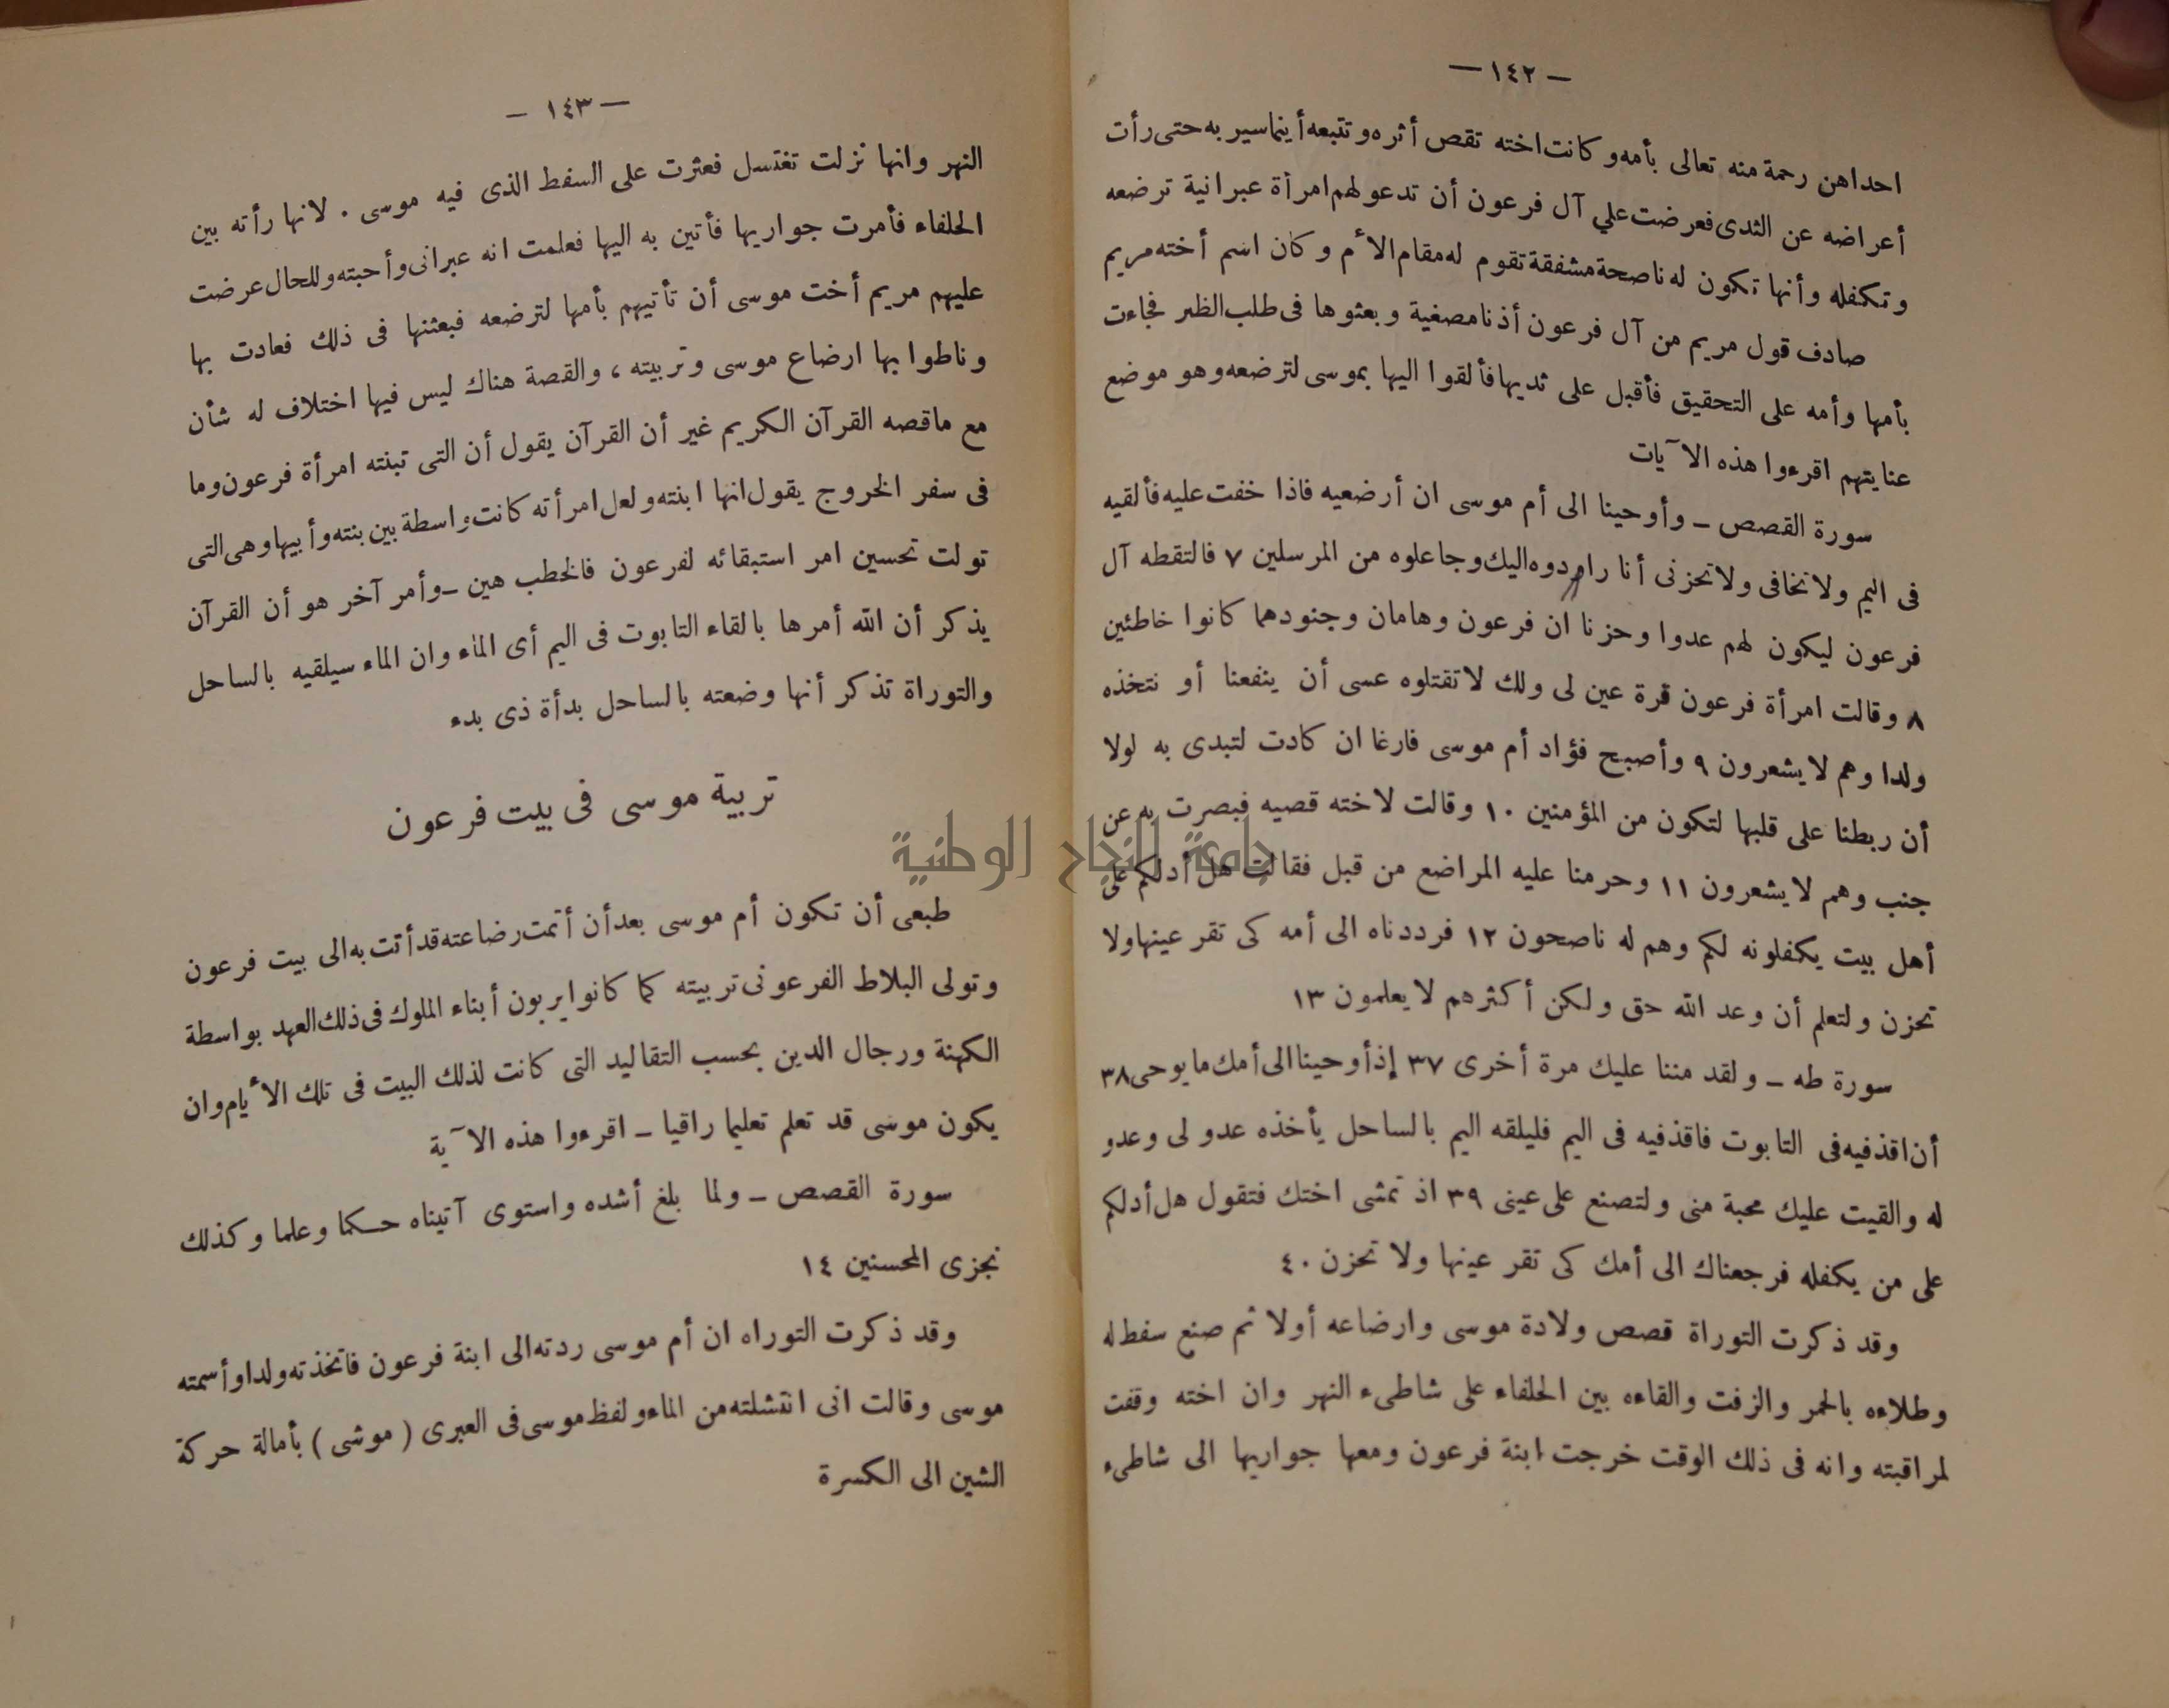 — ١٤٢ —
احداهن رحمة منه تعالى بأمه وكانت اخته تقص أثره وتتبعه أينما سير به حتى رأت
أعراضه عن الثدى فعرضت علي آل فرعون أن تدعو لهم امرأة عبرانية ترضعه
وتكفله وأنها تكون له ناصحة مشفقة تقوم له مقام الأم وكان اسم أخته مريم
صادف قول مريم من آل فرعون أذنا مصغية وبعثوها فى طلب الظئر فجاءت
بأمها وأمه على التحقيق فأقبل على ثديها فألقوا اليها بموسى لترضعه وهو موضع
عنايتهم اقرءوا هذه الآيات
سورة القصص ـ وأوحينا الى أم موسى ان أرضعيه فاذا خفت عليه فألقيه
فى اليم ولا تخافى ولا تحزنى أنا رادوه اليك وجاعلوه من المرسلين ٧ فالتقطه آل
فرعون ليكون لهم عدوا وحزنا ان فرعون وهامان وجنودهما كانوا خاطئين
٨ وقالت امرأة فرعون قرة عين لى ولك لا تقتلوه عسى أن ينفعنا أو نتخذه
ولدا وهم لا يشعرون ٩ وأصبح فؤاد أم موسى فارغا ان كادت لتبدى به لولا
أن ربطنا على قلبها لتكون من المؤمنين ١٠ وقالت لاخته قصيه فبصرت به عن
جنب وهم لا يشعرون ١١ وحرمنا عليه المراضع من قبل فقالت هل أدلكم على
أهل بيت يكفلونه لكم وهم له ناصحون ١٢ فرددناه الى أمه كى تقر عينها ولا
تحزن ولتعلم أن وعد الله حق ولكن أكثرهم لا يعلمون ١٣
سورة طه ـ ولقد مننا عليك مرة أخرى ٣٧ إذ أوحينا الى أمك ما يوحى ٣٨
أن اقذفيه فى التابوت فاقذفيه فى اليم فليلقه اليم بالساحل يأخذه عدو لى وعدو
له والقيت عليك محبة منى ولتصنع على عينى ٣٩ اذ تمشى اختك فتقول هل أدلكم
على من يكفله فرجعناك الى أمك كى تقر عينها ولا تحزن ٤٠
وقد ذكرت التوراة قصص ولادة موسى وارضاعه أولا ثم صنع سفط له
وطلاءه بالحمر والزفت والقاءه بين الحلفاء على شاطىء النهر وان اخته وقفت
لمراقبته وانه فى ذلك الوقت خرجت ابنة فرعون ومعها جواريها الى شاطىء
— ١٤٣ —
النهر وانها نزلت تغتسل فعثرت على السفط الذى فيه موسى . لانها رأته بين
الحلفاء فأمرت جواريها فأتين به اليها فعلمت انه عبرانى وأحبته وللحال عرضت
عليهم مريم أخت موسى أن تأتيهم بأمها لترضعه فبعثنها فى ذلك فعادت بها
وناطوا بها ارضاع موسى وتربيته ، والقصة هناك ليس فيها اختلاف له شأن
مع ما قصه القرآن الكريم غير أن القرآن يقول أن التى تبنته امرأة فرعون وما
فى سفر الخروج يقول انها ابنته ولعل امرأته كانت واسطة بين بنته وأبيها وهى التى
تولت تحسين امر استبقائه لفرعون فالخطب هين ـ وأمر آخر هو أن القرآن
يذكر أن الله أمرها بالقاء التابوت فى اليم أى الماء وان الماء سيلقيه بالساحل
والتوراة تذكر أنها وضعته بالساحل بدأة ذى بدء
تربية موسى فى بيت فرعون
طبعى أن تكون أم موسى بعد أن أتمت رضاعته قد أتت به الى بيت فرعون
وتولى البلاط الفرعونى تربيته كما كانوا يربون أبناء الملوك فى ذلك العهد بواسطة
الكهنة ورجال الدين بحسب التقاليد التى كانت لذلك البيت فى تلك الأيام وان
يكون موسى قد تعلم تعليما راقيا ـ اقرءوا هذه الآية
سورة القصص ـ ولما بلغ أشده واستوى آتيناه حكما وعلما وكذلك
نجزى المحسنين ١٤
وقد ذكرت التوراه ان أم موسى ردته الى ابنة فرعون فاتخذته ولدا وأسمته
موسى وقالت انى انتشلته من الماء ولفظ موسى فى العبرى ( موشى ) بأمالة حركة
الشين الى الكسرة
جامعة النجاح الوطنية